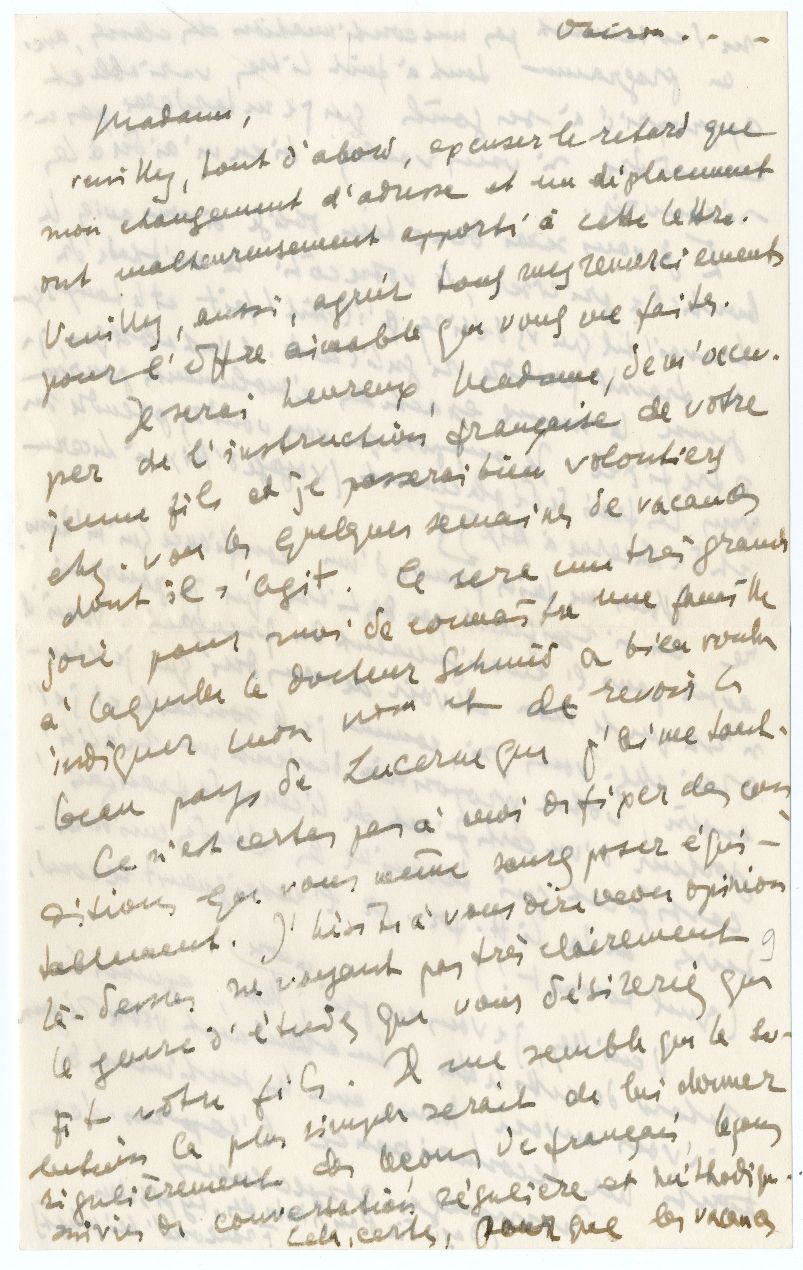 Madame,
veuillez, tout d'abord, excuser le retard que
mon changement d'adresse et un déplacement
ont malheureusement apporté à cette lettre.
Veuillez, aussi, agréer tous mes remerciements
pour l'offre aimable que vous me faites.
Je serai heureux, Madame, de m'occu-
per de l'instruction française de votre
jeune fils et je passerai bien volontiers
chez vous les quelques semaines de vacances
dont il s'agit. Ce sera une très grande
joie pour moi de connaître une famille
à laquelle le docteur Schmid a bien voulu
indiquer mon nom et de revoir le
beau pays de Lucerne que j'aime tant.
Ce n'est certes pas à moi de fixer des con
ditions que vous même saurez poser équi-
tablement. J'hésite à vous dire mon opinion
là-dessus ne voyant pas très clairement
le genre d'études que vous désireriez que
fit votre fils. Il me semble que la so-
lution la plus simple serait de lui donner
régulièrement des leçons de français, leçons
suivies de conversation régulière et méthodique.
Cela, certes, pour que les vacances